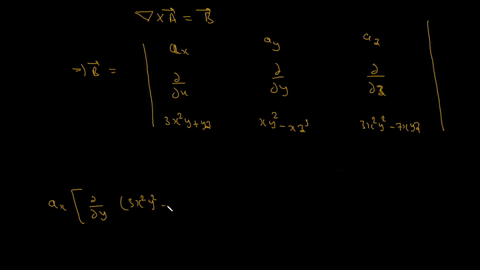 ∇×A⃗ = B⃗
aₓ a_y a_z
⇒ B⃗ =
∂/∂x ∂/∂y ∂/∂z
3x²y+yz xy²−xz³ 3x²y²−7xyz
aₓ [ ∂/∂y (3x²y² −